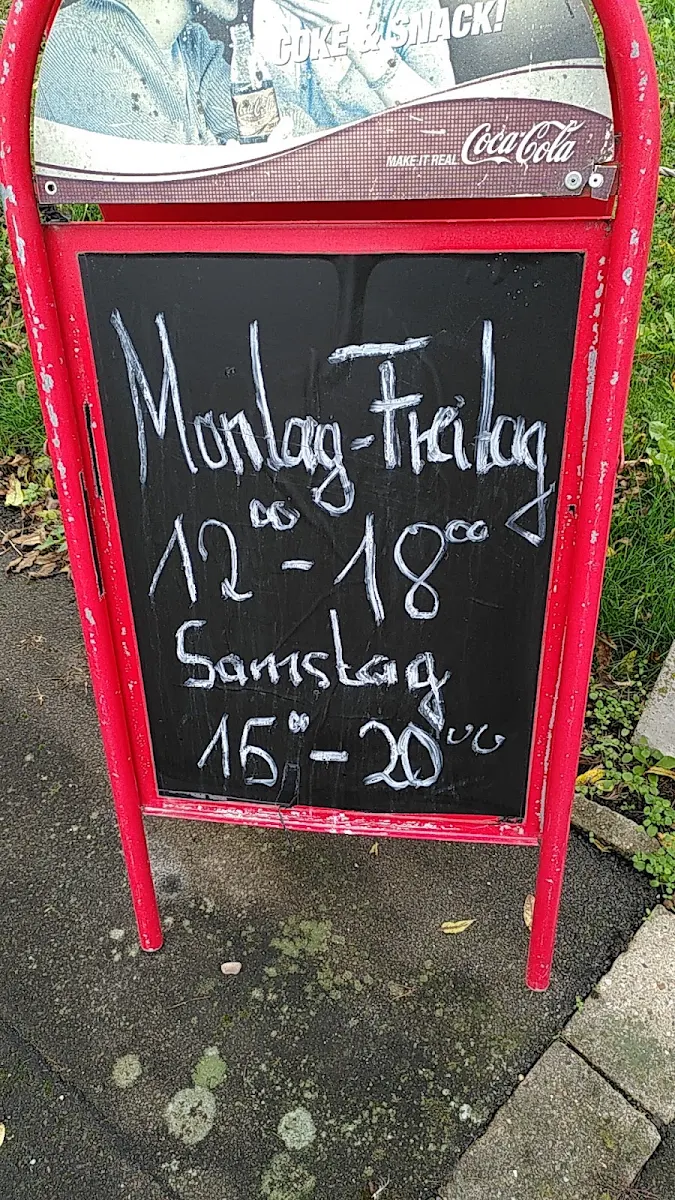 COKE & SNACK!
MAKE IT REAL Coca-Cola
Montag-Freitag
12⁰⁰ - 18⁰⁰
Samstag
15⁰⁰ - 20⁰⁰